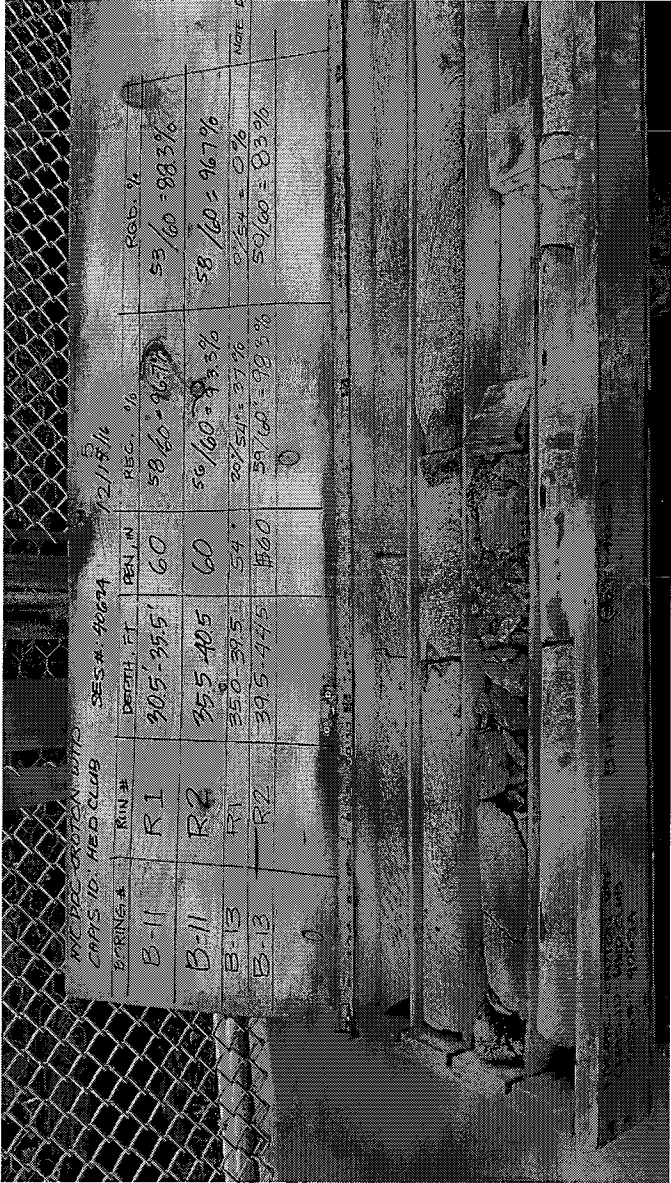 NYC DPC CROTON WTP
CAPIS ID: MED CLUB SES#: 40674 12/15/16
BORING # RUN # DEPTH, FT PEN, IN REC. % RQD. %
B-11 R1 30.5'-35.5' 60 58/60" = 96.7% 53/60 = 88.3%
B-11 R2 35.5-40.5 60 56/60 = 93.3% 58/60 = 96.7%
B-13 R1 35.0-39.5 54" 20"/54" = 37% 0"/54" = 0% NOTE
B-13 R2 39.5-44.5 60 59/60 = 98.3% 50/60 = 83%
B-11 R1 R2